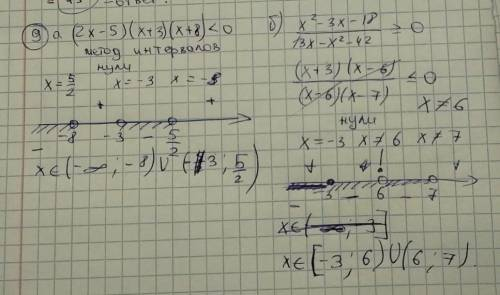 = 43) - ответ.
⑨ а (2x-5)(x+3)(x+8)<0
метод интервалов
нули
x=5/2 x=-3 x=-8
+ +
-8 -3 - 5/2
-
x∈(-∞;-8)∪(-3;5/2)
б) (x²-3x-18)/(13x-x²-42) ≥ 0
((x+3)(x-6))/((x-6)(x-7)) ≤ 0
x≠6
нули
x=-3 x≠6 x≠7
+ + ! +
-3 - 6 - 7
-
x∈(-∞; 3]
x∈[-3;6)∪(6;7).